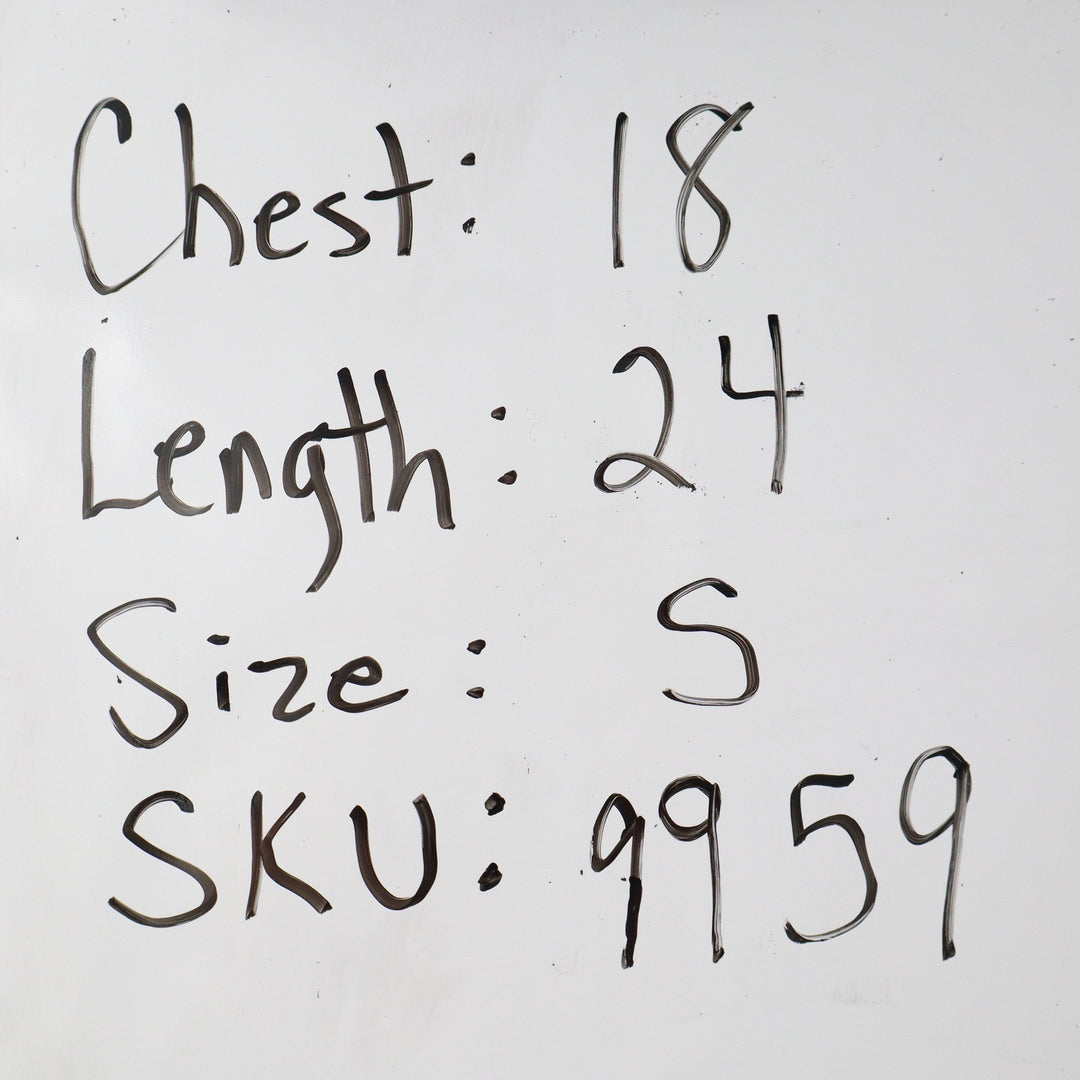 Chest: 18
Length: 24
Size: S
SKU: 9959